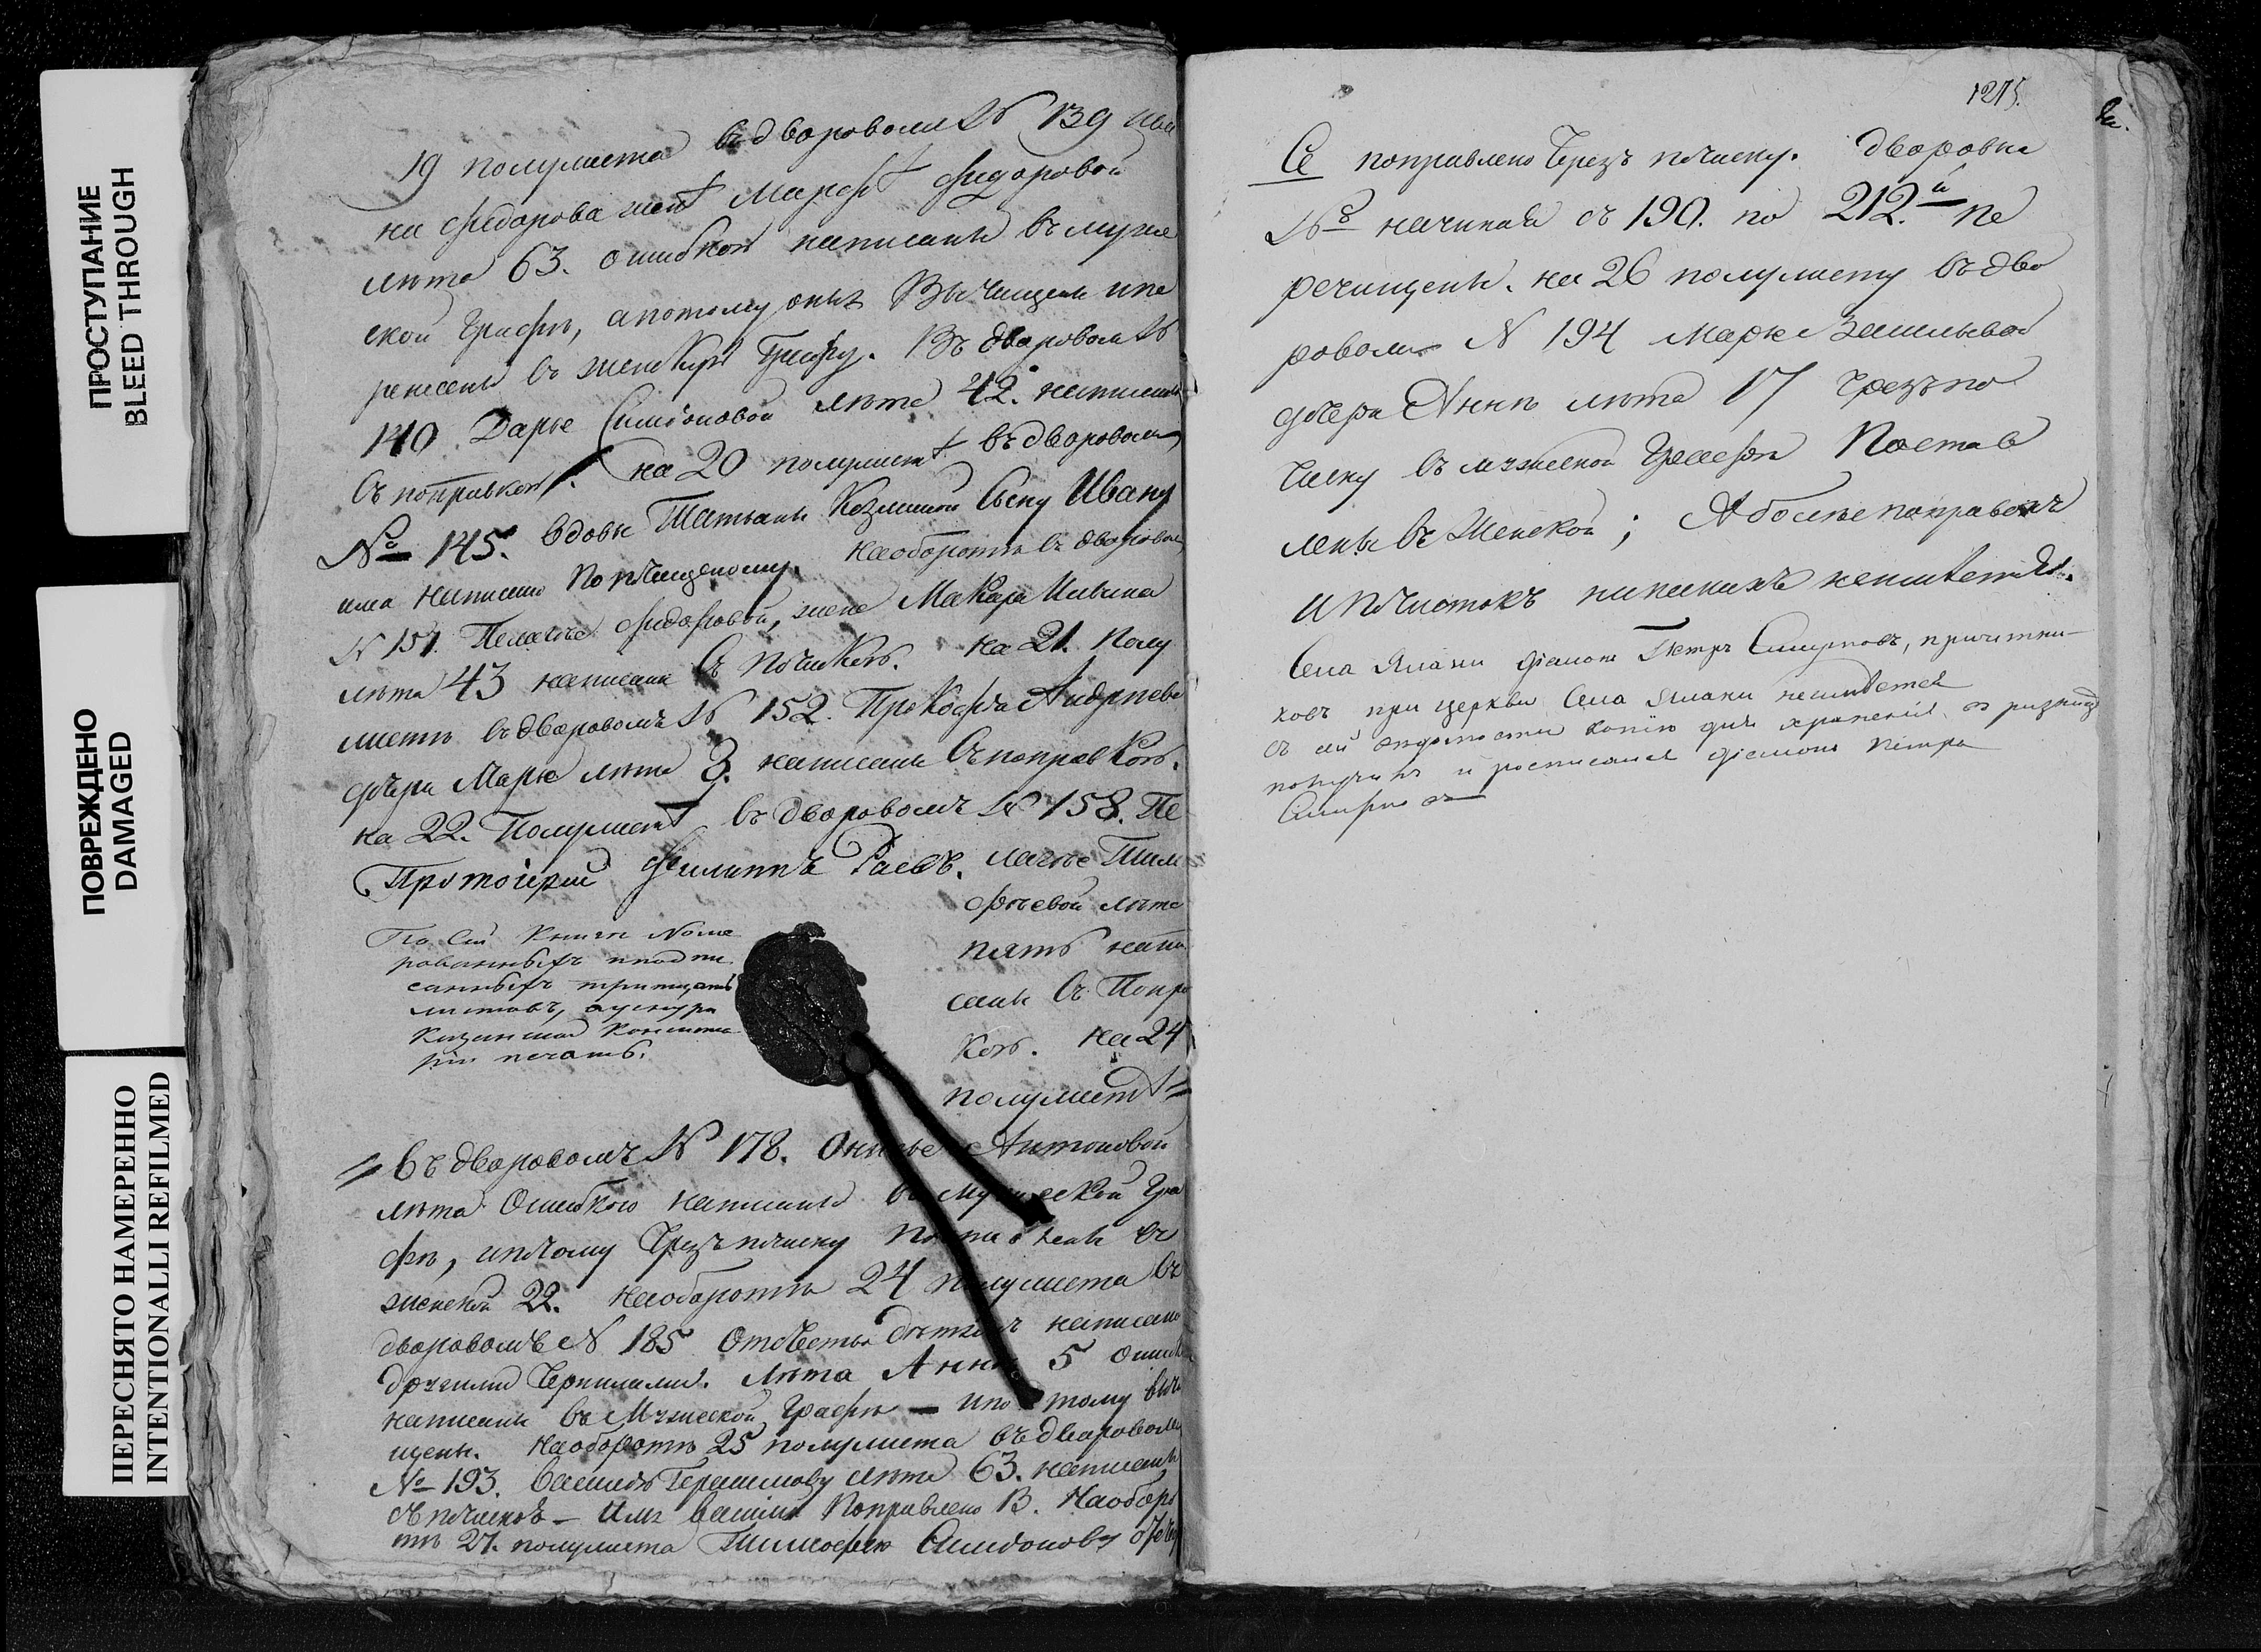 ПРОСТУПАНИЕ
BLEED THROUGH
ПОВРЕЖДЕНО
DAMAGED
ПЕРЕСНЯТО НАМЕРЕННО
INTENTIONALLI REFILMED
19 полулиста въ дворовомъ № 139 Ива
на Федорова женѣ Марфѣ Федоровой
лѣта 63. ошибкою написаны въ муже
ской графѣ, а потому оныя вычищены и пе
ренесены въ женскую графу. Въ дворовом №
140 Дарье Симеоновой лѣта 42. написаны
съ поправкою. На 20 полулистѣ въ дворовомъ
№ 145. вдовы Татьяны Козминой сыну Ивану
имя написано по чищеному. На оборотѣ въ дворовом
№ 151 Пелагѣе Федоровой, жене Макара Ильина
лѣта 43 написаны съ почискою. На 21. полу
листѣ въ дворовомъ № 152. Прокофья Андреева
дочери Марье лѣта 3. написаны съ поправкою.
на 22. полулистѣ въ дворовомъ № 158. Пе
Протоіерей Филиппъ Раевъ.
лагѣе Тимо
фѣевой лѣта
пять напи
саны съ попра
кою. На 24
полулистѣ
По сей книге номе
рованныхъ и подпи
санныхъ тритцать
листовъ, а у шнура
Казанской Консисто
ріи печать.
въ дворовомъ № 178. Антоновой
лѣта ошибкою написаны въ мужеской гра
фѣ, и потому чрезъ почиску поставлены въ
женской 22. На оборотѣ 24 полулиста въ
дворовомъ № 185 написано
другими чернилами. Лѣта Анны 5 ошиб
написаны въ мужеской графѣ — и потому вычи
щены. На оборотѣ 25 полулиста въ дворовомъ
№ 193. Василью Герасимову лѣта 63. написаны
съ почискою — Поправлено В. На оборо
тѣ 27. полулиста Тимофею Симеонову
1215.
Се поправлено чрезъ почиску. дворовые
№ начиная съ 190. по 212.й пе
речищены. На 26 полулисту въ дво
ровомъ № 194 Марке Васильевой
дочери Анны лѣта 17 чрезъ по
чиску въ мужеской графы постав
лены въ женской; А более поправокъ
и почистокъ никакихъ неимѣется.
Села Ямаши діаконъ Петръ Смирновъ, причетни-
ковъ при церкви села Ямаши неимѣется
съ сей ведомости копію для храненія в ризнице
получилъ и росписался діаконъ Петръ
Смирновъ